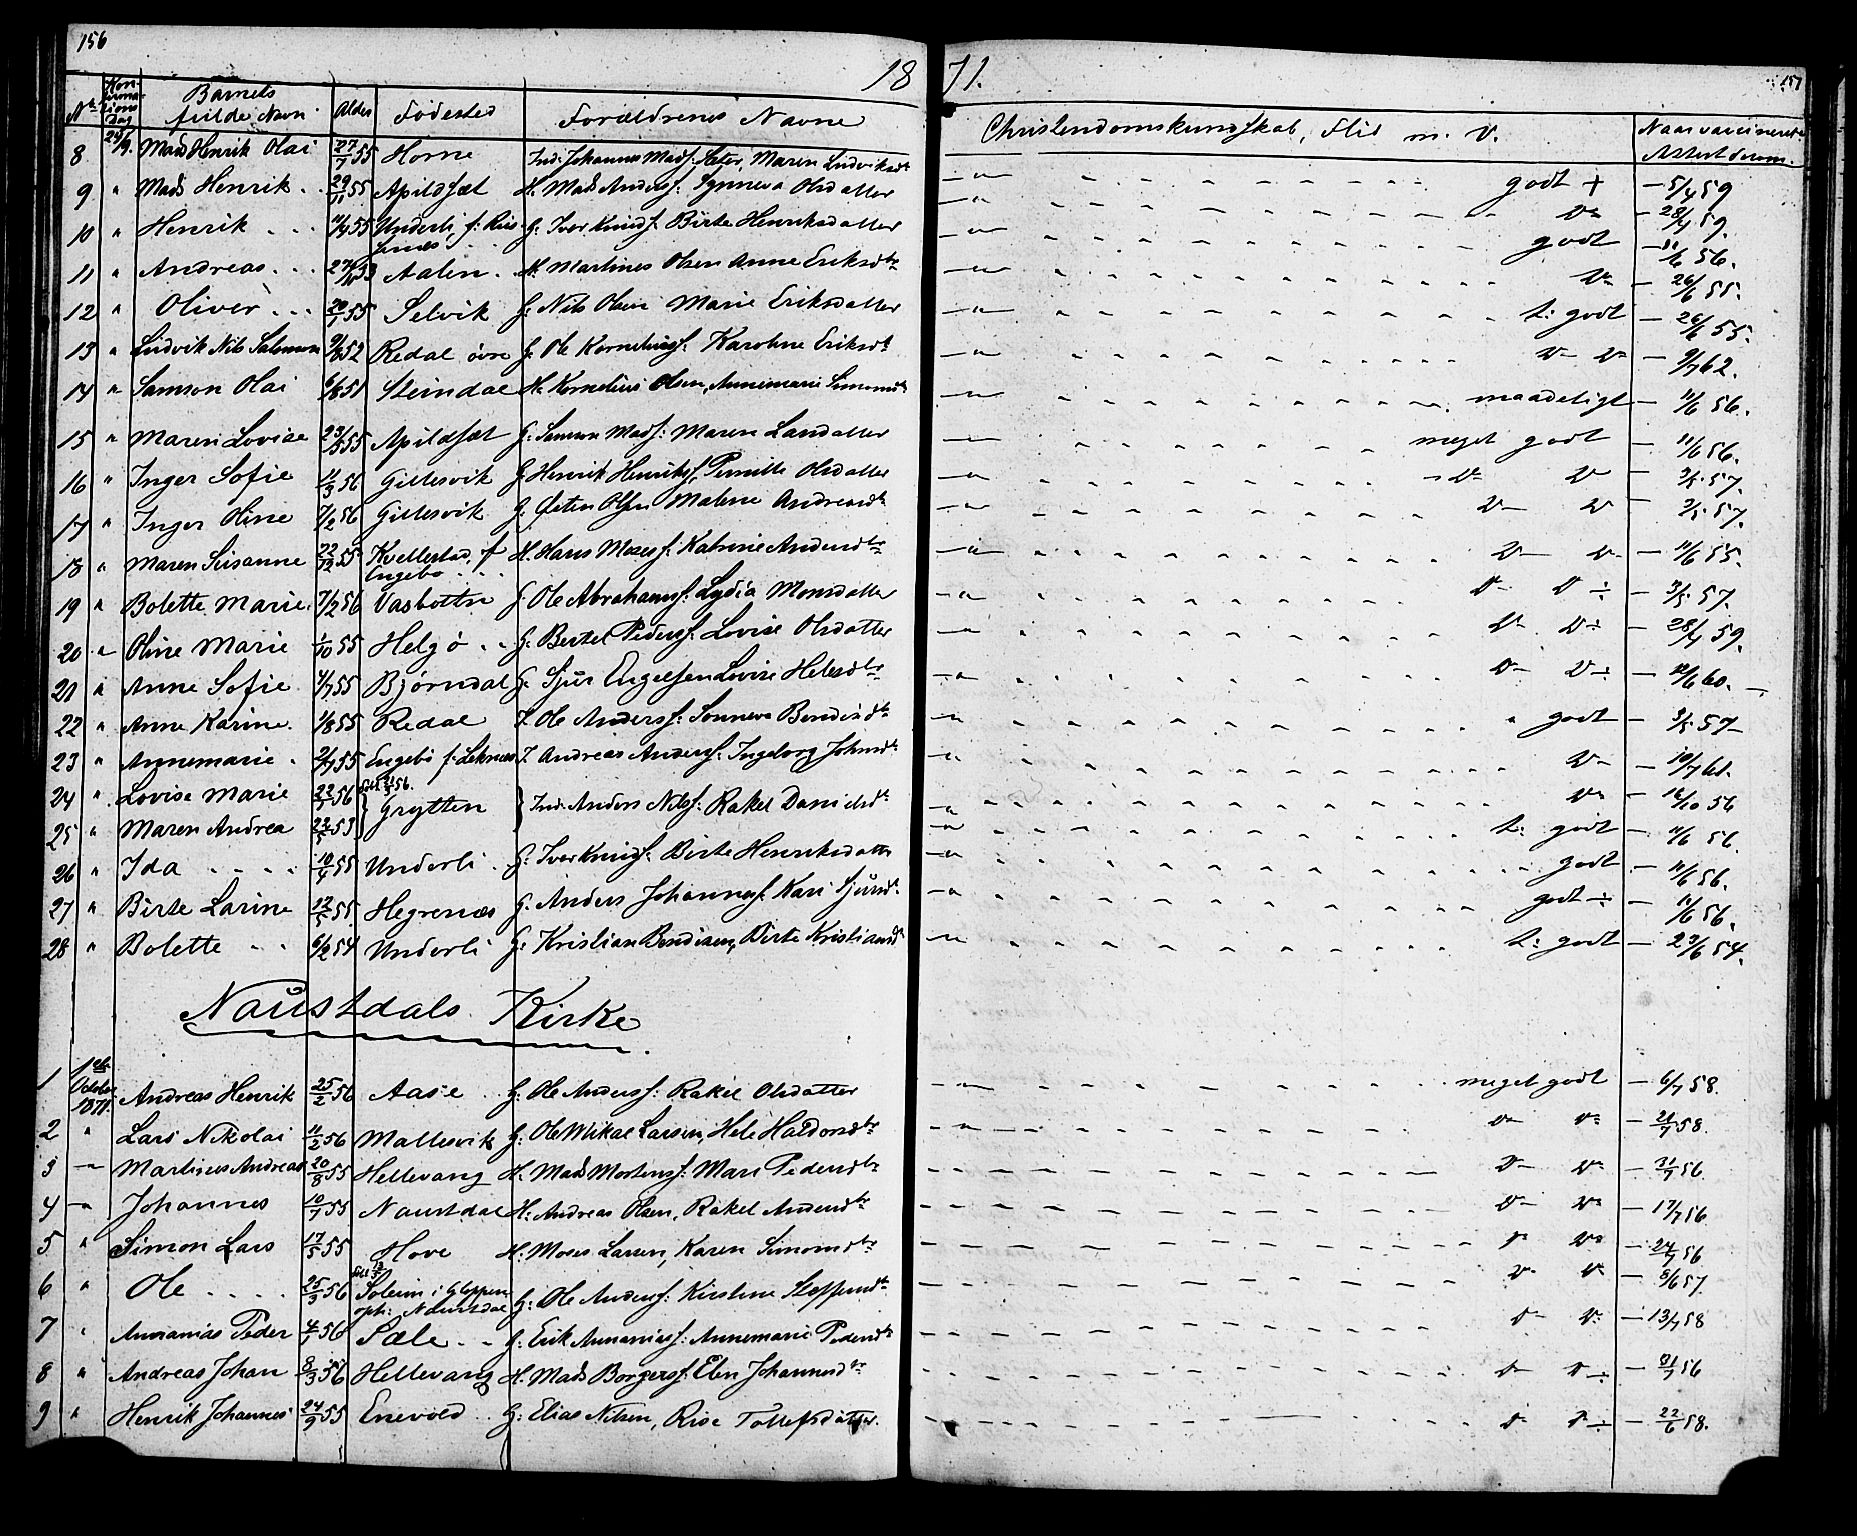 156
18 71.
157
No. Konfirmations Dag Barnets fulde Navn Alder Fødested Forældrenes Navne Christendomskundskab, Flid m. v. Naar vaccineret Attest derom.
8 24/9. Mads Henrik Olai 27/7 55 Horne Ind: Johannes Mads. Sæter, Maren Ludviksdr godt + 5/4 59
9 " Mads Henrik 29/11 55 Apildsæt H. Mads Anders. Synneva Olsdatter do 28/4 59.
10 " Henrik 11/4 55 Underli, f: Riis- G. Iver Knuds. Birte Henriksdatter godt 11/6 56.
senæs
11 " Andreas Aalen H. Martines Olsen Anne Eriksdr do 26/6 55.
12 " Oliver 20/7 55 Selvik G. Nils Olsen Marie Eriksdatter t: godt 26/6 55.
13 " Ludvik Nils Salomon 9/6 52 Redal øvre G. Ole Kornelius. Karoline Eriksdr do do 9/7 62.
14 " Samson Olai 6/8 51 Steindal H. Kornelius Olsen, Annemarie Simonsdr maadeligt 11/6 56.
15 " Maren Lovise 23/5 55 Apildsæt G. Samson Mads: Maren Larsdatter meget godt 11/6 56.
16 " Inger Sofie 11/3 56 Gillesvik G. Henrik Henriks. Pernille Olsdatter do do 3/5 57.
17 " Inger Oline 7/2 56 Gillesvik G. Peter Olsen Malene Andreasdr do do 3/5 57.
18 " Maren Susanne 22/12 55 Kvellestad, f. H. Hans Moses. Katrine Andersdr do do 11/6 55.
Engebø
19 " Bolette Marie 7/2 56 Vasbotten G. Ole Abrahams. Lydia Monsdatter do do ÷ 3/5 57.
20 " Oline Marie 1/10 55 Helgø G. Bertel Peders. Lovise Olsdatter do do ÷ 28/4 59.
21 " Anne Sofie 4/7 55 Bjørndal G. Sjur Engelsen Lovise Helesdr do do ÷ 12/6 60.
22 " Anne Karine 1/8 55 Redal F. Ole Anders. Sønneva Bendiksdr godt 3/5 57
23 " Annemarie 2/7 55 Engebø f: Leknæs F. Andreas Anders. Ingeborg Johnsdr do 19/7 61.
24 " Lovise Marie 22/1 56 Grytten Ind: Anders Nils. Rakel Danielsdr do 12/10 56
25 " Maren Andrea 22/5 53 t: godt 11/6 56.
26 " Ida 10/4 55 Underli G. Iver Knuds. Birte Henriksdatter godt 11/6 56.
27 " Birte Larine 12/5 55 Hegrenæs G. Anders Johannes. Kari Sjursdr godt ÷ 11/6 56.
28 " Bolette 6/2 54 Underli G: Kristian Bendixen, Birte Kristiansdr t: godt 23/6 54.
Naustdals Kirke
1 1ste October 1871. Andreas Henrik 25/2 56 Aase G: Ole Anders. Rakel Olsdatter meget godt 6/7 58.
2 " Lars Nikolai 11/2 56 Mallesvik G: Ole Mikal Larsen, Hele Haldorsdr do do 21/7 58.
3 " Martinus Andreas 20/8 55 Hellevang H. Mads Mortens. Mari Pedersdr do do 31/7 56.
4 " Johannes 10/7 55 Naustdal H. Andreas Olsen, Rakel Andersdr do do 17/7 56.
5 " Simon Lars 17/5 55 Hove H. Moses Larsen, Karen Simonsdr do do 24/7 56
6 " Ole 25/3 56 Soleim i Gloppen G: Ole Anders. Kirstine Steffensdr do do 8/6 57.
oph: Naustdal
7 " Annanias Peder 4/1 56 Sæle G: Erik Annanias. Annemarie Pedersdr do do 13/7 58
8 " Andreas Johan 8/3 56 Hellevang H. Mads Borgers. Elen Johannesdr do do ÷ 31/7 56
9 " Henrik Johannes 24/9 55 Enevold G: Elias Nilsen, Rise Tollefsdatter. do do ÷ 22/6 58.